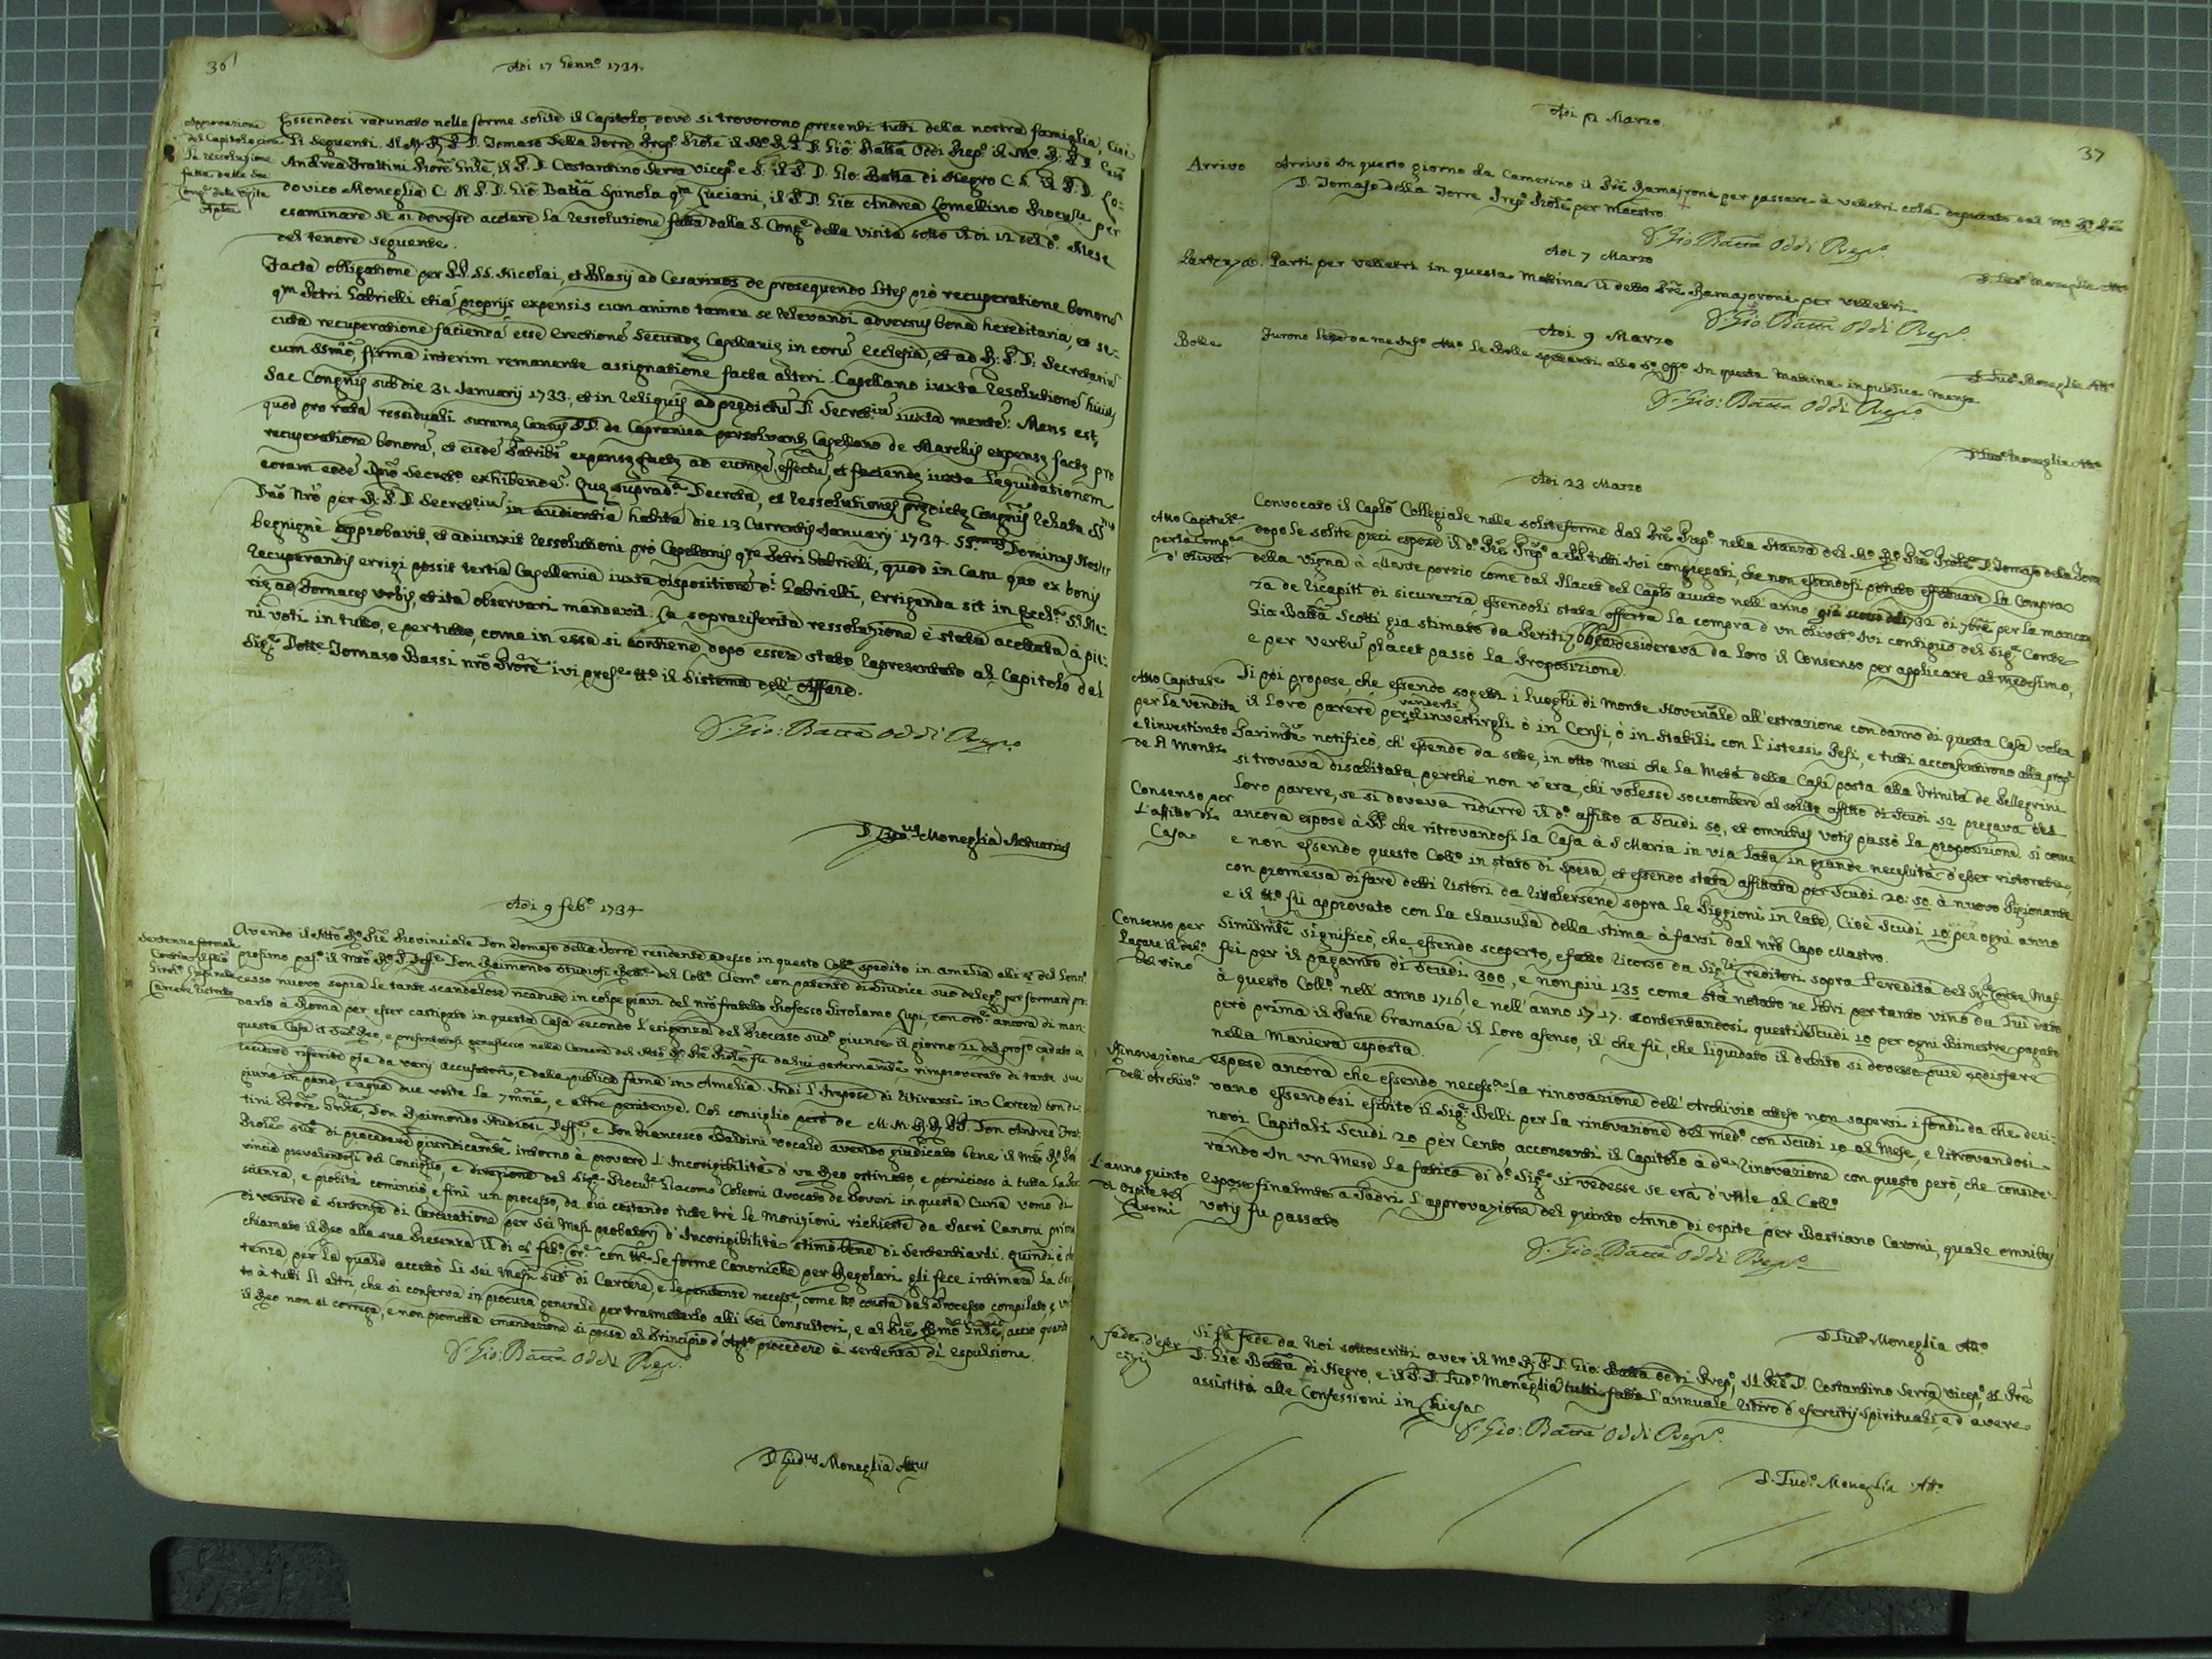 36
Adi 17 Genn.º 1734.
Approvazione
del Capitolo circa
la ressoluzione
fatta dalla Sac
Cong.e della Visita
Essendosi radunato nelle forme solite il Capitolo, dove si trovorono presenti tutti della nostra famiglia, cioè
li seguenti. Il M. R. P. D. Tomaso della Torre Prep.º Prōle il M.º R. P. D. Gio: Batta Oddi Prep.º il M.º R. P. D.
Andrea Frattini Prorē Gnle, il P. D. Costantino Serra Vicep.º e S: il P. D. Gio: Batta di Negro C. S. il P. D. Lo:
dovico Moneglia C. il P. D. Gio: Batta Spinola qm Luciani, il P. D. Gio Andrea Lomellino per
esaminare se si dovesse accettare la ressoluzione fatta dalla S. Cong.e della visita sotto il dì 12 del d.º Mese
del tenore seguente.
Facta obligatione per PP. SS. Nicolai, et Blasij ad Cesarinos de prosequendo lites prò recuperatione bonorū
qm Petri Gabrielli etiā proprijs expensis cum animo tamen se relevandi adversus bona hereditaria, et se-
cuta recuperatione faciendā esse Erectionē secundę Capellanię in eorū Ecclesia, et ad R: P. D: Secretariū
cum SSmō, firma interim remanente assignatione facta alteri Capellano iuxta resolutionē huius
Sac Congnis sub die 31 Januarij 1733, et in reliquis ad predictū D Secretiū iuxta mentē: Mens est,
quod pro rata residuali summę Census DD. de Capranica persolvant Capellano de Marchis expensę factę pro
recuperatione bonorū, et eisdē Patribus expensę factę ad eumdē effectū, et faciendę iuxta Liquidationem
coram eodē Dnō Secret.º exhibendē. Quę suprad.a Decreta, et ressolutiones predictę Congnis relata SSmo
Dnō Nrō per R: P. D Secretiū in audientia habita die 13 Currentis January 1734. SS.mus Dominus Noster
benignè approbavit, et adiunxit ressolutioni prò Capellanijs qm Petri Gabrielli, quod in Casu quo ex bonis
recuperandis errigi possit tertia Capellania iuxta dispositionē d.i Gabrielli, Errigenda sit in Eccl.a S. Ma:
rię ad fornaces Vrbis, et ita observari mandavit. La sopra riferita ressoluzione è stata accettata, à pie:
ni voti in tutto, e per tutto, come in essa si contiene dopo esser stato rapresentato al Capitolo dal
Sig.r Dott.e Tomaso Bassi nrō Prorē ivi pres.e il sistema dell' Affare.
D. Gio: Batta Oddi Prep.º
D. Ludo.us Moneglia Actuarius
Adi 9 feb.º 1734
Sentenza formale
Contro il frło
Girol.º Lupi nelle
Carceri ristretto
Avendo il Mtō Rº Prē Provinciale Don Tomaso della Torre residente adesso in questo Coll.º spedito in amelia alli 2 del Genn.º
prosimo pas.º il Mtō Rº P. Deff.e Don Raimondo Studiosi Rett.e del Coll.º Clem.º con patente di Giudice suo deleg.º per formare pro:
cesso nuovo sopra le tante scandolose ricadute in colpe gravi del nrō fratello Professo Girolamo Lupi, con ord.e ancora di man:
darlo à Roma per esser castigato in questa Casa secondo l'esigenza del Processo sud.º giunse il giorno 22 del pros.º cadato in
questa Casa il sud.º Reo, e presentatosi genuflesso nella Camera del Mtō Rº Prē Prōle fu da lui paternamte rimproverato di tante sue
recidive riferite già da varij accusatori, e dalla publica fama in Amelia. Indi l'impose di ritirarsi in Carcere con di:
giuno in pane, e aqua due volte la 7mna, e altre penitenze. Col consiglio però de M. M. R. R. PP. Don Andrea Frat:
tini Prorē Gnle, Don Raimondo Studiosi Deff.e, e Don Francesco Baldini vocale avendo giudicato bene il Mtō Rº Prē
Prōle sud.º di procedere giuridicamte intorno à provare l'Incorigibilità d'un Reo ostinato e pernicioso à tutta la Pro:
vincia prevalendosi del Consiglio, e direzione del Sig.r Procur.e Giacomo Coleoni Avocato de Poveri in questa Curia vomo di
scienza, e probità cominciò, e finì un processo, da cui costando tutte trè le Monizioni richieste da Sacri Canoni prima
di venire à sentenza di Carceratione per sei Mesi probatorij d'Incorigibilità stimò bene di sentenziarli. quindi è che
chiamato il Reo alla sua Presenza il dì 4 feb.º cor.e con tte le forme Canoniche per Regolari gli fece intimare la Sen:
tenza, per la quale accettò li sei Mesi sud.i di Carcere, e le penitenze necess.e, come tto consta dal Processo compilato, e uni
to à tutti li altri, che si conserva in procura generale per trasmetterlo alli sei Consultori, e al Prē Rmō Gnle, acciò quando
il Reo non si correga, e non prometta emendazione si possa al Principio d'Ag.to procedere à sentenza di espulsione.
D. Gio: Batta Oddi Prep.º
D. Lud.us Moneglia Attus
37
Adi p.º Marzo.
Arrivo
Arrivò in questo giorno da Camerino il Prē Ramajoni per passare à velletri colà deputato dal M.º Rº Prē
D. Tomaso della Torre Prep.º Prōle per Maestro.
D. Gio: Batta Oddi Prep.º
D. Lud.º Moneglia Att.º
Adi 7 Marzo
Partenza.
Partì per velletri in questa Mattina il detto Prē Ramajoni per velletri.
D. Gio: Batta Oddi Prep.º
D. Lud.º Moneglia Att.º
Adi 9 Marzo
Bolle
Furono lette da me infº Att.º le Bolle spettanti allo S.º Offº in questa Mattina in publica mensa
D. Gio: Batta Oddi Prep.º
D. Lud.º Moneglia Att.º
Adi 23 Marzo
Atto Capitul.e
per la comp.a
d' oliveto
Convocato il Caplō Collegiale nelle solite forme dal Prē Prep.º nella stanza del M.º Rº Prē Prōle D. Tomaso della Torre
dopo le solite preci espose il d.º Prē Prep.º a PP. tutti ivi congregati, che non essendosi potuto effettuare la Compra
della vigna à Monte porzio come dal Placet del Caplō avuto nell' anno già scorso del 1732 di 7brē per la mancan
za de ricapiti di sicurezza, essendoli stata offerta la compra d'un oliveto ivi contiguo del Sig.r Conte
Gio: Batta Scotti già stimato da Periti desiderava da loro il Consenso per applicare al medesimo,
e per verbū placet passò la Proposizione.
Atto Capitul.e
per la vendita
e rinvestimto
de Monti
Di poi propose, che essendo sogetti i luoghi di Monte Novennale all'estrazione con danno di questa Casa volea
il loro parere per venderli rinvestirgli ò in Censi, ò in stabili con l'istessi Pesi, e tutti acconsentirono alla prop.e
Parimte notificò, ch'essendo da sette, in otto Mesi che la Metà della Casa posta alla Trinità de Pellegrini
si trovava disabitata, perchè non v'era, chi volesse soccombere al solito affitto di scudi 52 pregava del
loro parere, se si doveva ridurre il d.º affitto a scudi 50, et omnibus votis passò la proposizione. si come
Consenso per
l'affitto di
Casa
ancora espose à PP che ritrovandosi la Casa à S Maria in via lata in grande necessità d'esser ristorata,
e non essendo questo Coll.º in stato di spesa, et essendo stata affittata per scudi 20: 50 à nuovo Pigionante
con promessa di fare detti ristori da rivalersene sopra le Piggioni in rate, Cioè scudi 10 per ogni anno
e il tto fù approvato con la clausula della stima à farsi dal nrō Capo Mastro.
Consenso per
Pagare il deb.º
del vino
Similmte significò, che essendo scoperto, e fatto ricorso da Sig.ri Creditori sopra l'eredità del Sig.r Conte Maf
fei per il pagamto di scudi 300, e non più 135 come stà notato ne libri per tanto vino da lui dato
à questo Coll.º nell' anno 1716, e nell' anno 1717. contentandosi questi di scudi 10 per ogni Bimestre pagato
però prima il Pane bramava il loro asenso, il che fù, che liquidato il debito si dovesse pure sodisfare
nella Maniera esposta.
Rinovazione
dell' Archiv.º
espose ancora che essendo necess.a la rinovazione dell' Archivio atteso non sapersi i fondi da che deri:
vano essendosi esibito il Sig.r Belli per la rinovazione del med.º con scudi 10 al Mese, e ritrovandosi
novi Capitali scudi 20 per Cento, acconsentì il Capitolo à d.a rinovazione con questo però, che conside:
rando in un Mese la fatica di d.º Sig.r si vedesse se era d'utile al Coll.º
L'anno quinto
di Ospite del
Caromi
Espose finalmte a Padri l'approvazione del quinto Anno di ospite per Bastiano Caromi, quale omnibus
votis fu passato
D. Gio: Batta Oddi Prep.º
D. Lud.º Moneglia Att.º
fede d'eser
cizij
Si fà fede da Noi sottoscritti aver il M.º R. P. D. Gio: Batta Oddi Prep.º, Il Prē D. Costantino Serra Vicep.º, il Prē
D. Gio: Batta di Negro, e il P. D. Lud.º Moneglia tutti fatto l'annuale ritiro d'esercitij spirituali, e d'avere
assistito alle Confessioni in Chiesa
D. Gio: Batta Oddi Prep.º
D. Lud.º Moneglia Att.º